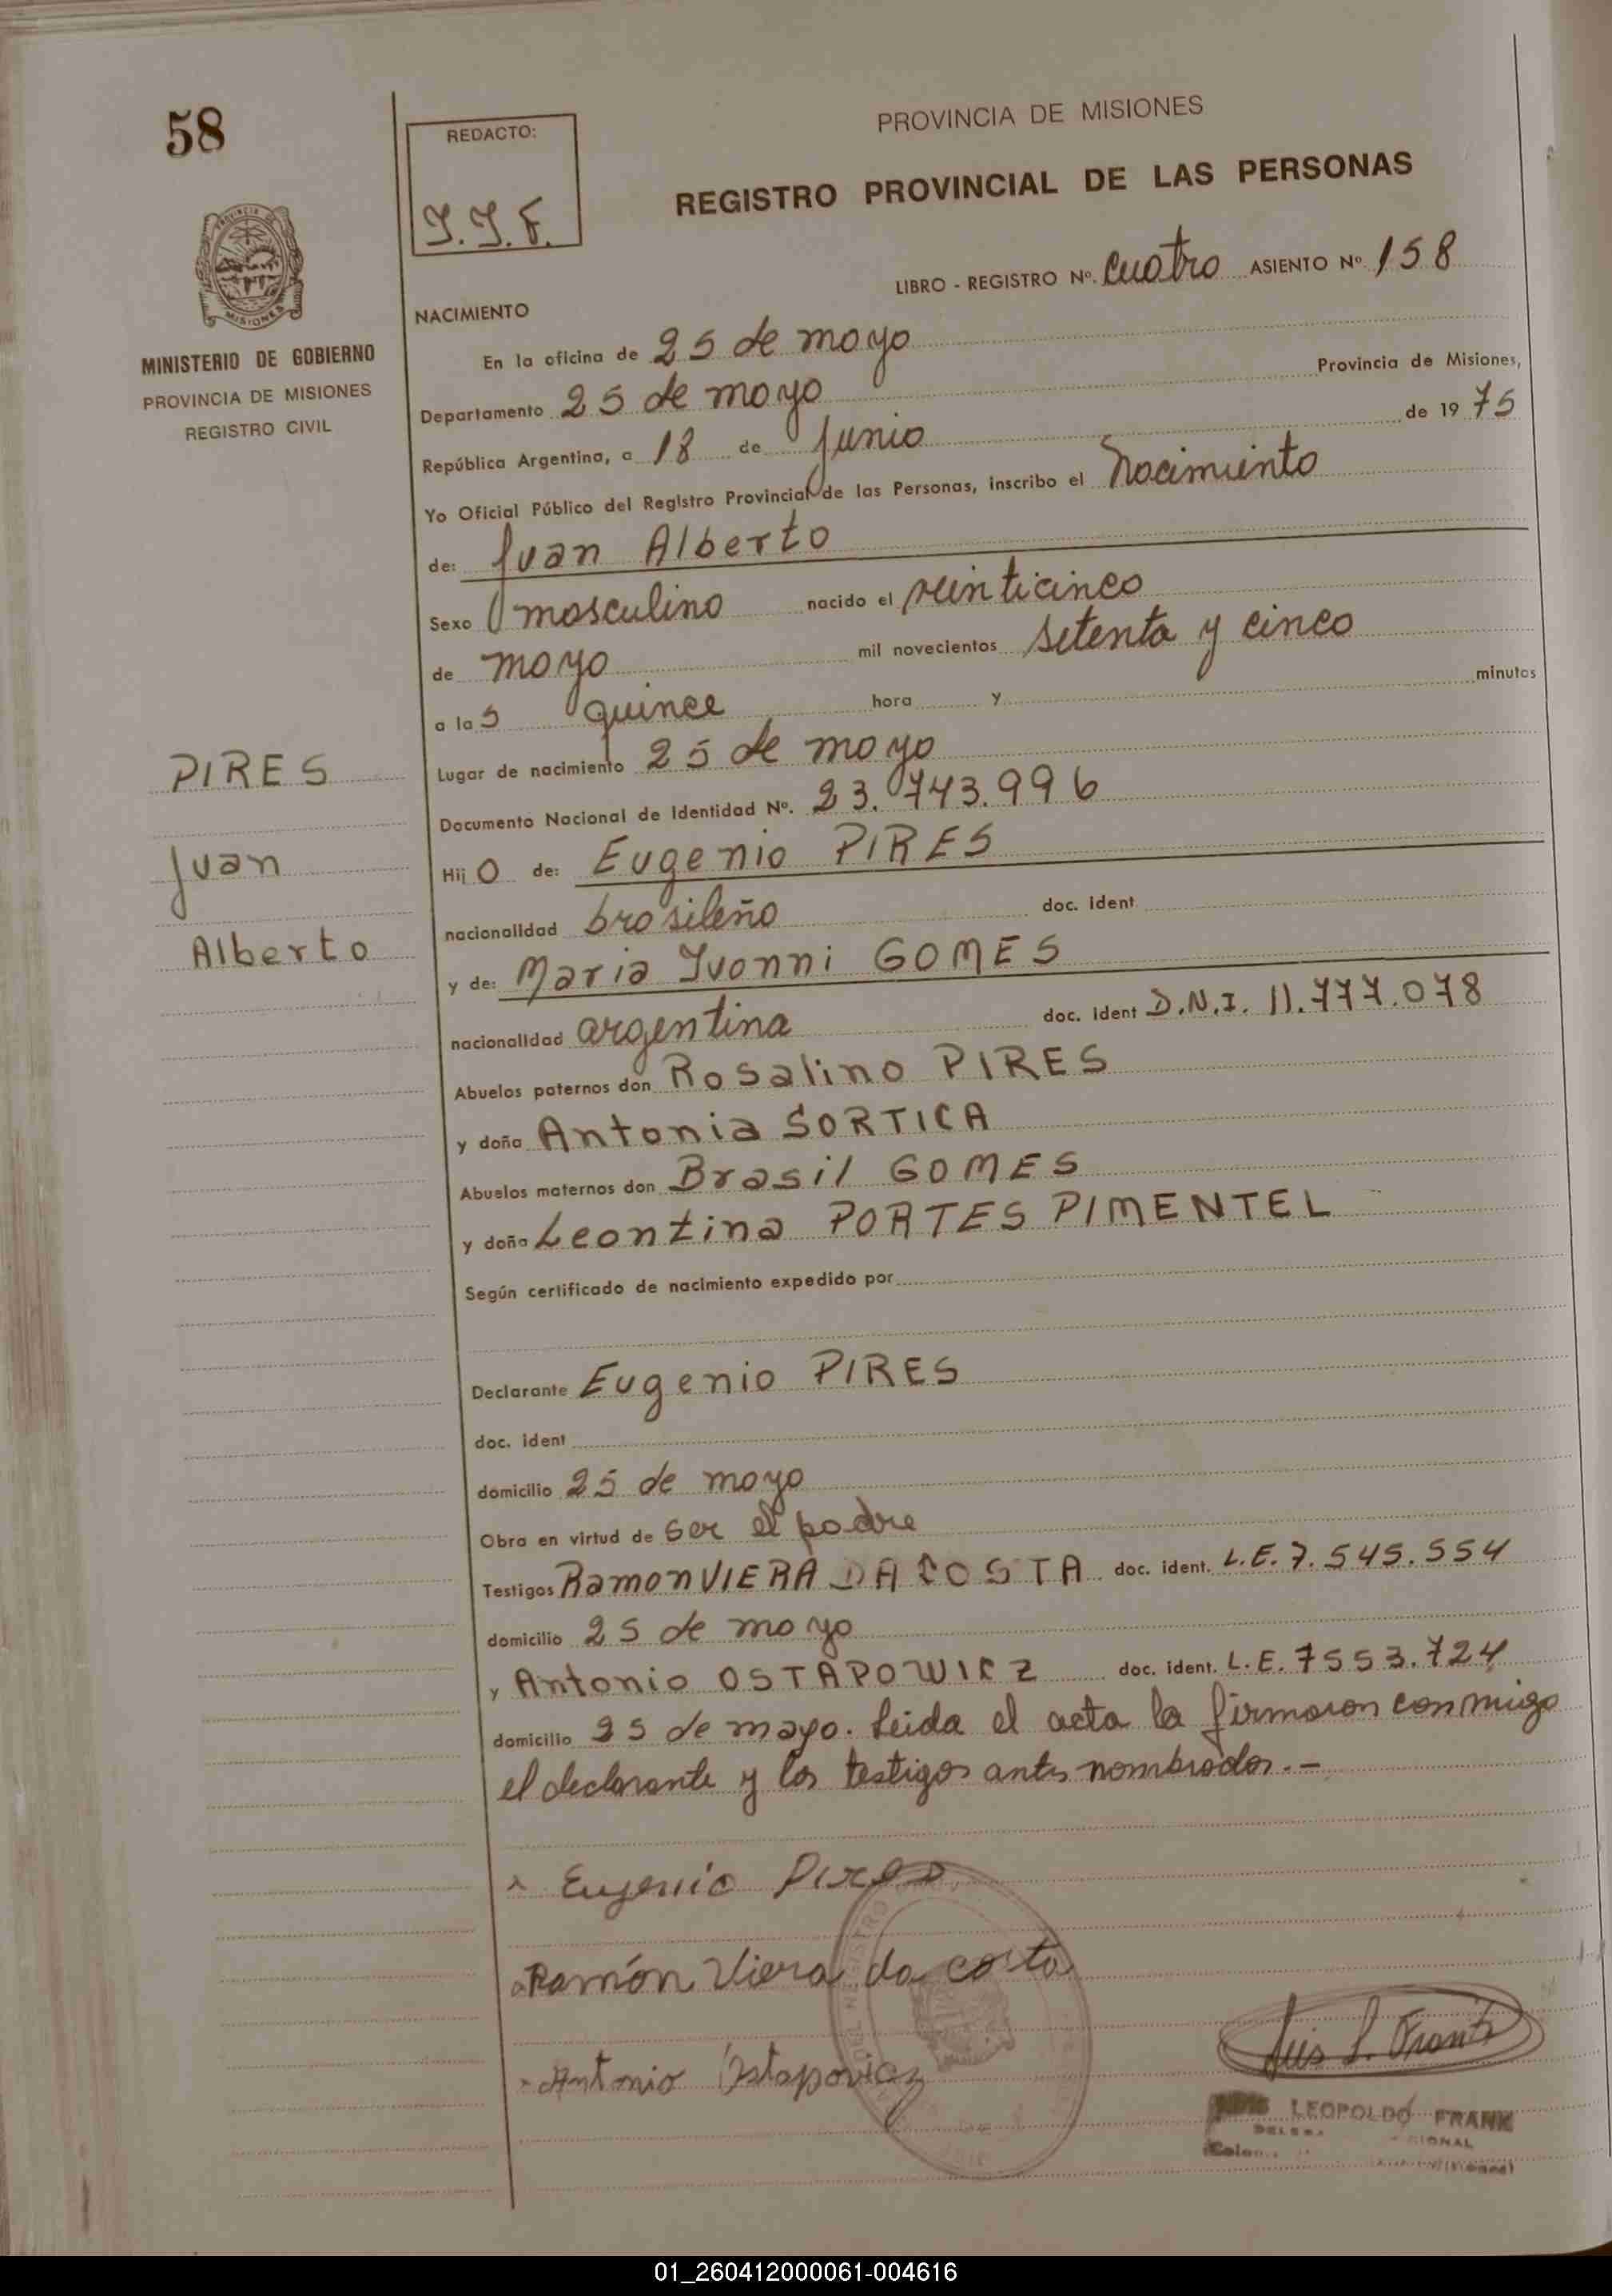 58
REDACTO:
J.J.F.
PROVINCIA DE MISIONES
REGISTRO PROVINCIAL DE LAS PERSONAS
LIBRO - REGISTRO Nº. cuatro ASIENTO Nº 158
PROVINCIA DE
MISIONES
MINISTERIO DE GOBIERNO
PROVINCIA DE MISIONES
REGISTRO CIVIL
NACIMIENTO
En la oficina de 25 de mayo
Departamento 25 de mayo Provincia de Misiones,
República Argentina, a 18 de Junio de 1975
Yo Oficial Público del Registro Provincial de las Personas, inscribo el Nacimiento
de: Juan Alberto
Sexo masculino nacido el veinticinco
de mayo mil novecientos setenta y cinco
a las quince hora y minutos
Lugar de nacimiento 25 de mayo
Documento Nacional de Identidad Nº. 23.743.996
PIRES
Juan
Alberto
Hijo de: Eugenio PIRES
nacionalidad brasileño doc. ident
y de: Maria Ivonni GOMES
nacionalidad argentina doc. ident D.N.I. 11.777.078
Abuelos paternos don Rosalino PIRES
y doña Antonia SORTICA
Abuelos maternos don Brasil GOMES
y doña Leontina PORTES PIMENTEL
Según certificado de nacimiento expedido por
Declarante Eugenio PIRES
doc. ident
domicilio 25 de mayo
Obra en virtud de ser el padre
Testigos Ramon VIERA DA COSTA doc. ident. L.E. 7.545.554
domicilio 25 de mayo
y Antonio OSTAPOWICZ doc. ident. L.E. 7553.724
domicilio 25 de mayo. Leida el acta la firmaron conmigo
el declarante y los testigos antes nombrados.-
Eugenio Pires
Ramón Viera da costa
Antonio Ostapovicz
Luis L. Frank
LEOPOLDO FRANK
01_260412000061-004616